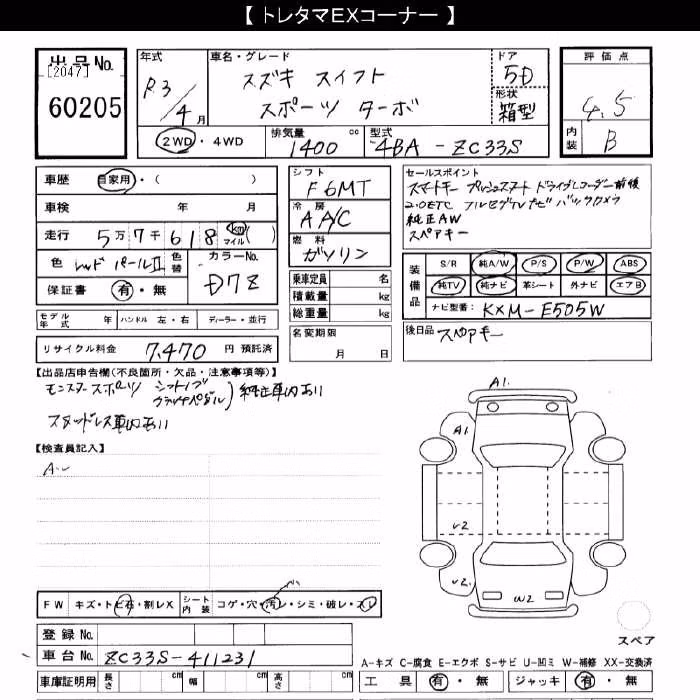 【 トレタマEXコーナー 】
出品No. [2047] 60205
年式 R3/4月
車名・グレード スズキ スイフト
スポーツ ターボ
ドア 5D
形状 箱型
評価点 4.5
内装 B
2WD・4WD 排気量 1400 cc 型式 4BA-ZC33S
車歴 自家用・( )
車検 年 月
走行 5万7千618 km マイル ( )
色 レッド パールII 色替 カラーNo. D7Z
保証書 有・無
シフト F6MT
冷房 AA/C
燃料 ガソリン
乗車定員 名
積載量 kg
総重量 kg
セールスポイント
スマートキー プッシュスタート ドライブレコーダー前後
2.0ETC フルセグTVナビ バックカメラ
純正AW
スペアキー
装備品 S/R 純A/W P/S P/W ABS
純TV 純ナビ 革シート 外ナビ エアB
ナビ型番: KXM-E505W
モデル年式 年 ハンドル 左・右 ディーラー・並行
名変期限 月 日
後日品 スペアキー
リサイクル料金 7,470 円 預託済
【出品店申告欄(不良箇所・欠品・注意事項等)】
モンスタースポーツ シフトノブ クラッチペダル)純正車内あり
スタッドレス車内あり
【検査員記入】
A〜
A1.
A1.
v2
v2.
W2
FW キズ・トビ石・割レX シート内装 コゲ・穴・汚レ・シミ・破レ・スレ
登録No.
車台No. ZC33S-411231
スペア
A-キズ C-腐食 E-エクボ S-サビ U-凹ミ W-補修 XX-交換済
車庫証明用 長さ cm 幅 cm 高さ cm 工具 有・無 ジャッキ 有・無